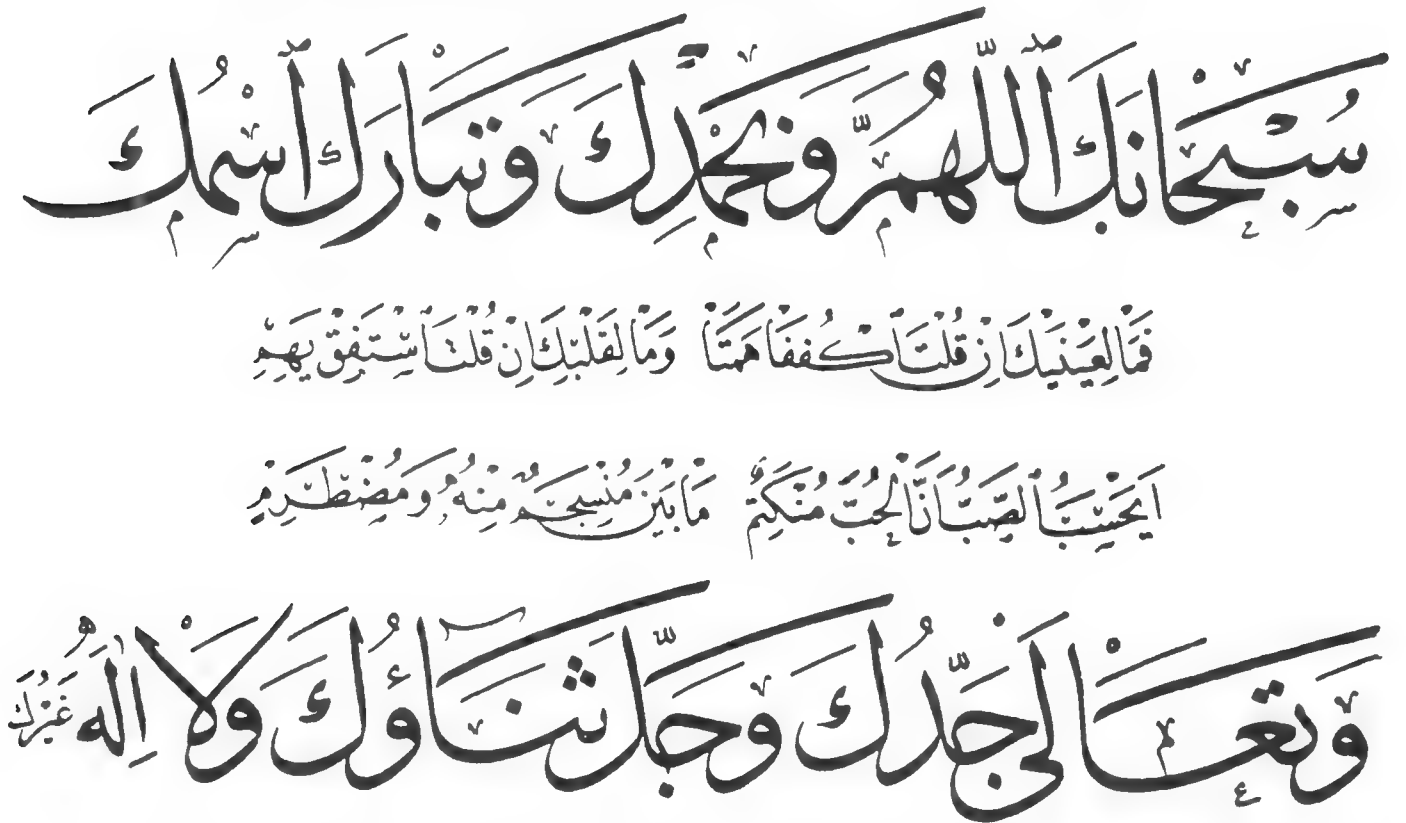 سُبْحَانَكَ ٱللَّهُمَّ وَبِحَمْدِكَ وَتَبَارَكَ ٱسْمُكَ
فَمَا لِعَيْنَيْكَ اِنْ قُلْتَ اكْفُفَا هَمَتَا وَمَا لِقَلْبِكَ اِنْ قُلْتَ اسْتَفِقْ يَهِمِ
اَيَحْسَبُ الصَّبُّ اَنَّ الْحُبَّ مُنْكَتِمٌ مَا بَيْنَ مُنْسَجِمٍ مِنْهُ وَمُضْطَرِمِ
وَتَعَالَى جَدُّكَ وَجَلَّ ثَنَاؤُكَ وَلَا اِلٰهَ غَيْرُكَ